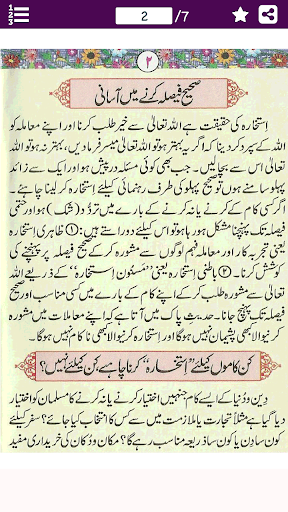 1
2
3
2
/7
۲
صحیح فیصلہ کرنے میں آسانی
اِستخارہ کی حقیقت ہے اللہ تعالیٰ سے خیر طلب کرنا اور اپنے معاملہ کو
اللہ کے سپرد کر دینا کہ اگر یہ بہتر ہو تو اللہ تعالیٰ میسر فرما دیں، بہتر نہ ہو تو اللہ
تعالیٰ اس سے بچالیں۔ جب بھی کوئی مسئلہ درپیش ہو اور ایک سے زائد
پہلو سامنے ہوں تو صحیح پہلو کی طرف رہنمائی کیلئے اِستخارہ کر لینا چاہئے۔
اگر کسی کام کے کرنے یا نہ کرنے کے بارے میں تردُّد (شک) ہو اور حتمی
فیصلہ تک پہنچنا مشکل ہو رہا ہو تو اس کیلئے دو راستے ہیں: ① ظاہری استخارہ
یعنی تجربہ کار اور معاملہ فہم لوگوں سے مشورہ کر کے صحیح فیصلہ پر پہنچنے کی
کوشش کرنا۔ ② باطنی اِستخارہ یعنی ”مسنُون اِستخارہ“ کے ذریعے اللہ
تعالیٰ سے مشورہ طلب کر کے اپنے کام کے بارے میں کسی مناسب اور صحیح
فیصلہ تک پہنچ جانا۔ حدیث پاک میں آتا ہے کہ اپنے معاملات میں مشورہ
کرنیوالا کبھی پشیمان نہیں ہوگا اور اِستخارہ کرنیوالا کبھی ناکام نہیں ہوگا۔
کن کاموں کیلئے ”اِستخارہ“ کرنا چاہیے، کن کیلئے نہیں؟
دین و دُنیا کے ایسے کام جنہیں اختیار کرنے یا نہ کرنے کا مسلمان کو اختیار
دیا گیا ہے مثلاً تجارت یا ملازمت میں سے کس کا انتخاب کیا جائے؟ سفر کیلئے
کون سا دِن یا کون سا ذریعہ مناسب رہے گا؟ مکان و دُکان کی خریداری مفید